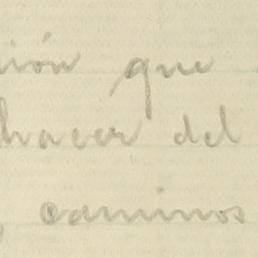 ión que
hacer del
, caminos